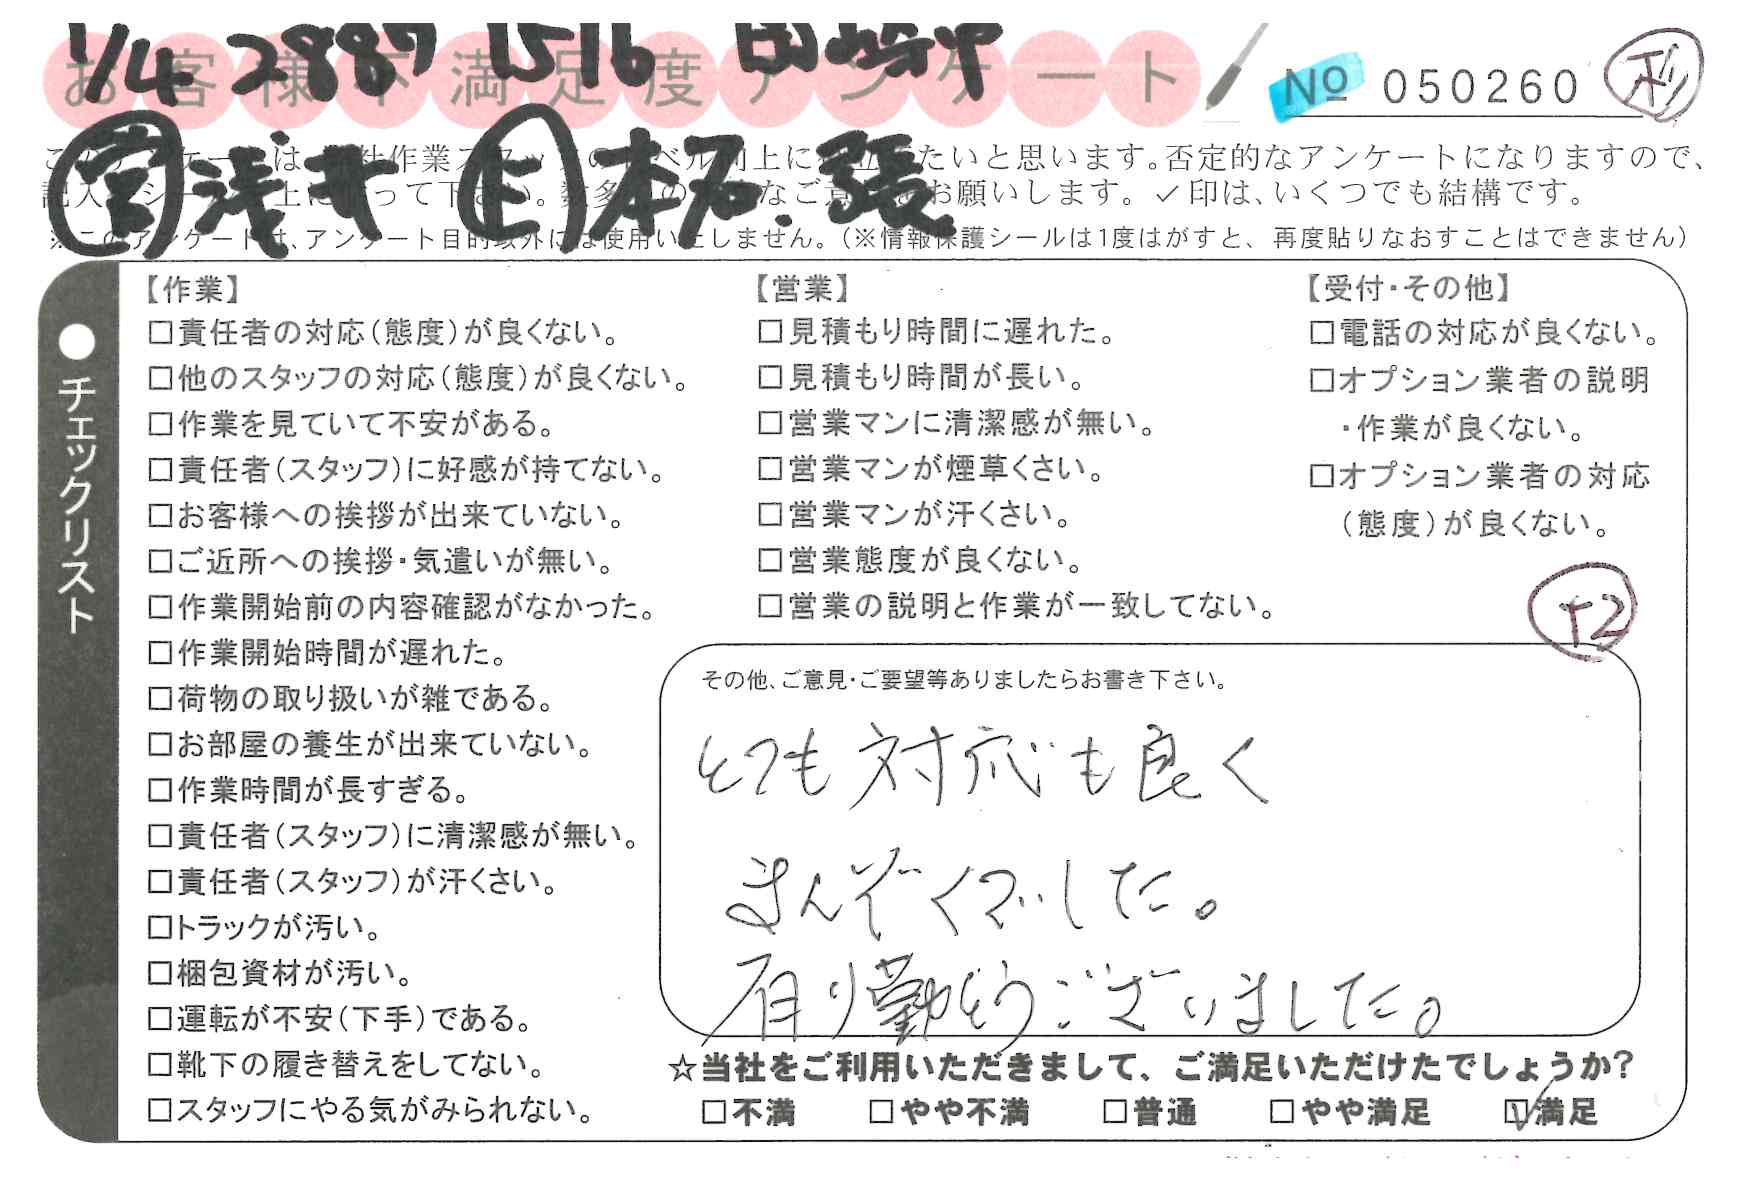 1/4 2887 1516 岡崎中
お客様不満足度アンケート
№ 050260
営 浅井 正 本名、張
このアンケートは、弊社作業スタッフのレベル向上に役立てたいと思います。否定的なアンケートになりますので、
記入後シールを上に貼って下さい。数多くの率直なご意見をお願いします。✓印は、いくつでも結構です。
※このアンケートは、アンケート目的以外には使用いたしません。(※情報保護シールは1度はがすと、再度貼りなおすことはできません)
●チェックリスト
【作業】
□責任者の対応(態度)が良くない。
□他のスタッフの対応(態度)が良くない。
□作業を見ていて不安がある。
□責任者(スタッフ)に好感が持てない。
□お客様への挨拶が出来ていない。
□ご近所への挨拶・気遣いが無い。
□作業開始前の内容確認がなかった。
□作業開始時間が遅れた。
□荷物の取り扱いが雑である。
□お部屋の養生が出来ていない。
□作業時間が長すぎる。
□責任者(スタッフ)に清潔感が無い。
□責任者(スタッフ)が汗くさい。
□トラックが汚い。
□梱包資材が汚い。
□運転が不安(下手)である。
□靴下の履き替えをしてない。
□スタッフにやる気がみられない。
【営業】
□見積もり時間に遅れた。
□見積もり時間が長い。
□営業マンに清潔感が無い。
□営業マンが煙草くさい。
□営業マンが汗くさい。
□営業態度が良くない。
□営業の説明と作業が一致してない。
【受付・その他】
□電話の対応が良くない。
□オプション業者の説明
・作業が良くない。
□オプション業者の対応
(態度)が良くない。
+2
その他、ご意見・ご要望等ありましたらお書き下さい。
とても対応も良く
まんぞくでした。
有り勤とうございました。
☆当社をご利用いただきまして、ご満足いただけたでしょうか?
□不満 □やや不満 □普通 □やや満足 ☑満足